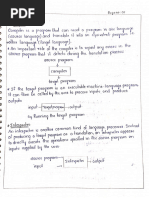 Chapter-01
Compiler is a program that can read a program in one language
(source language) and translate it into an
another language (target language).
* An important role of the compiler is to report any errors in the
source program that it detects during the translation process.
source program
Compiler
target program
If the target program is an executable machine-language program
to process inputs and produce
outputs
input
target program
output
by Running the target program
* Interpreter:
An interpreter is another common kind of language processor. Instead
of producing a target program as a translation, an interpreter appears
to directly execute the operations specified in the source program on
inputs
source program
input
Interpreter
output